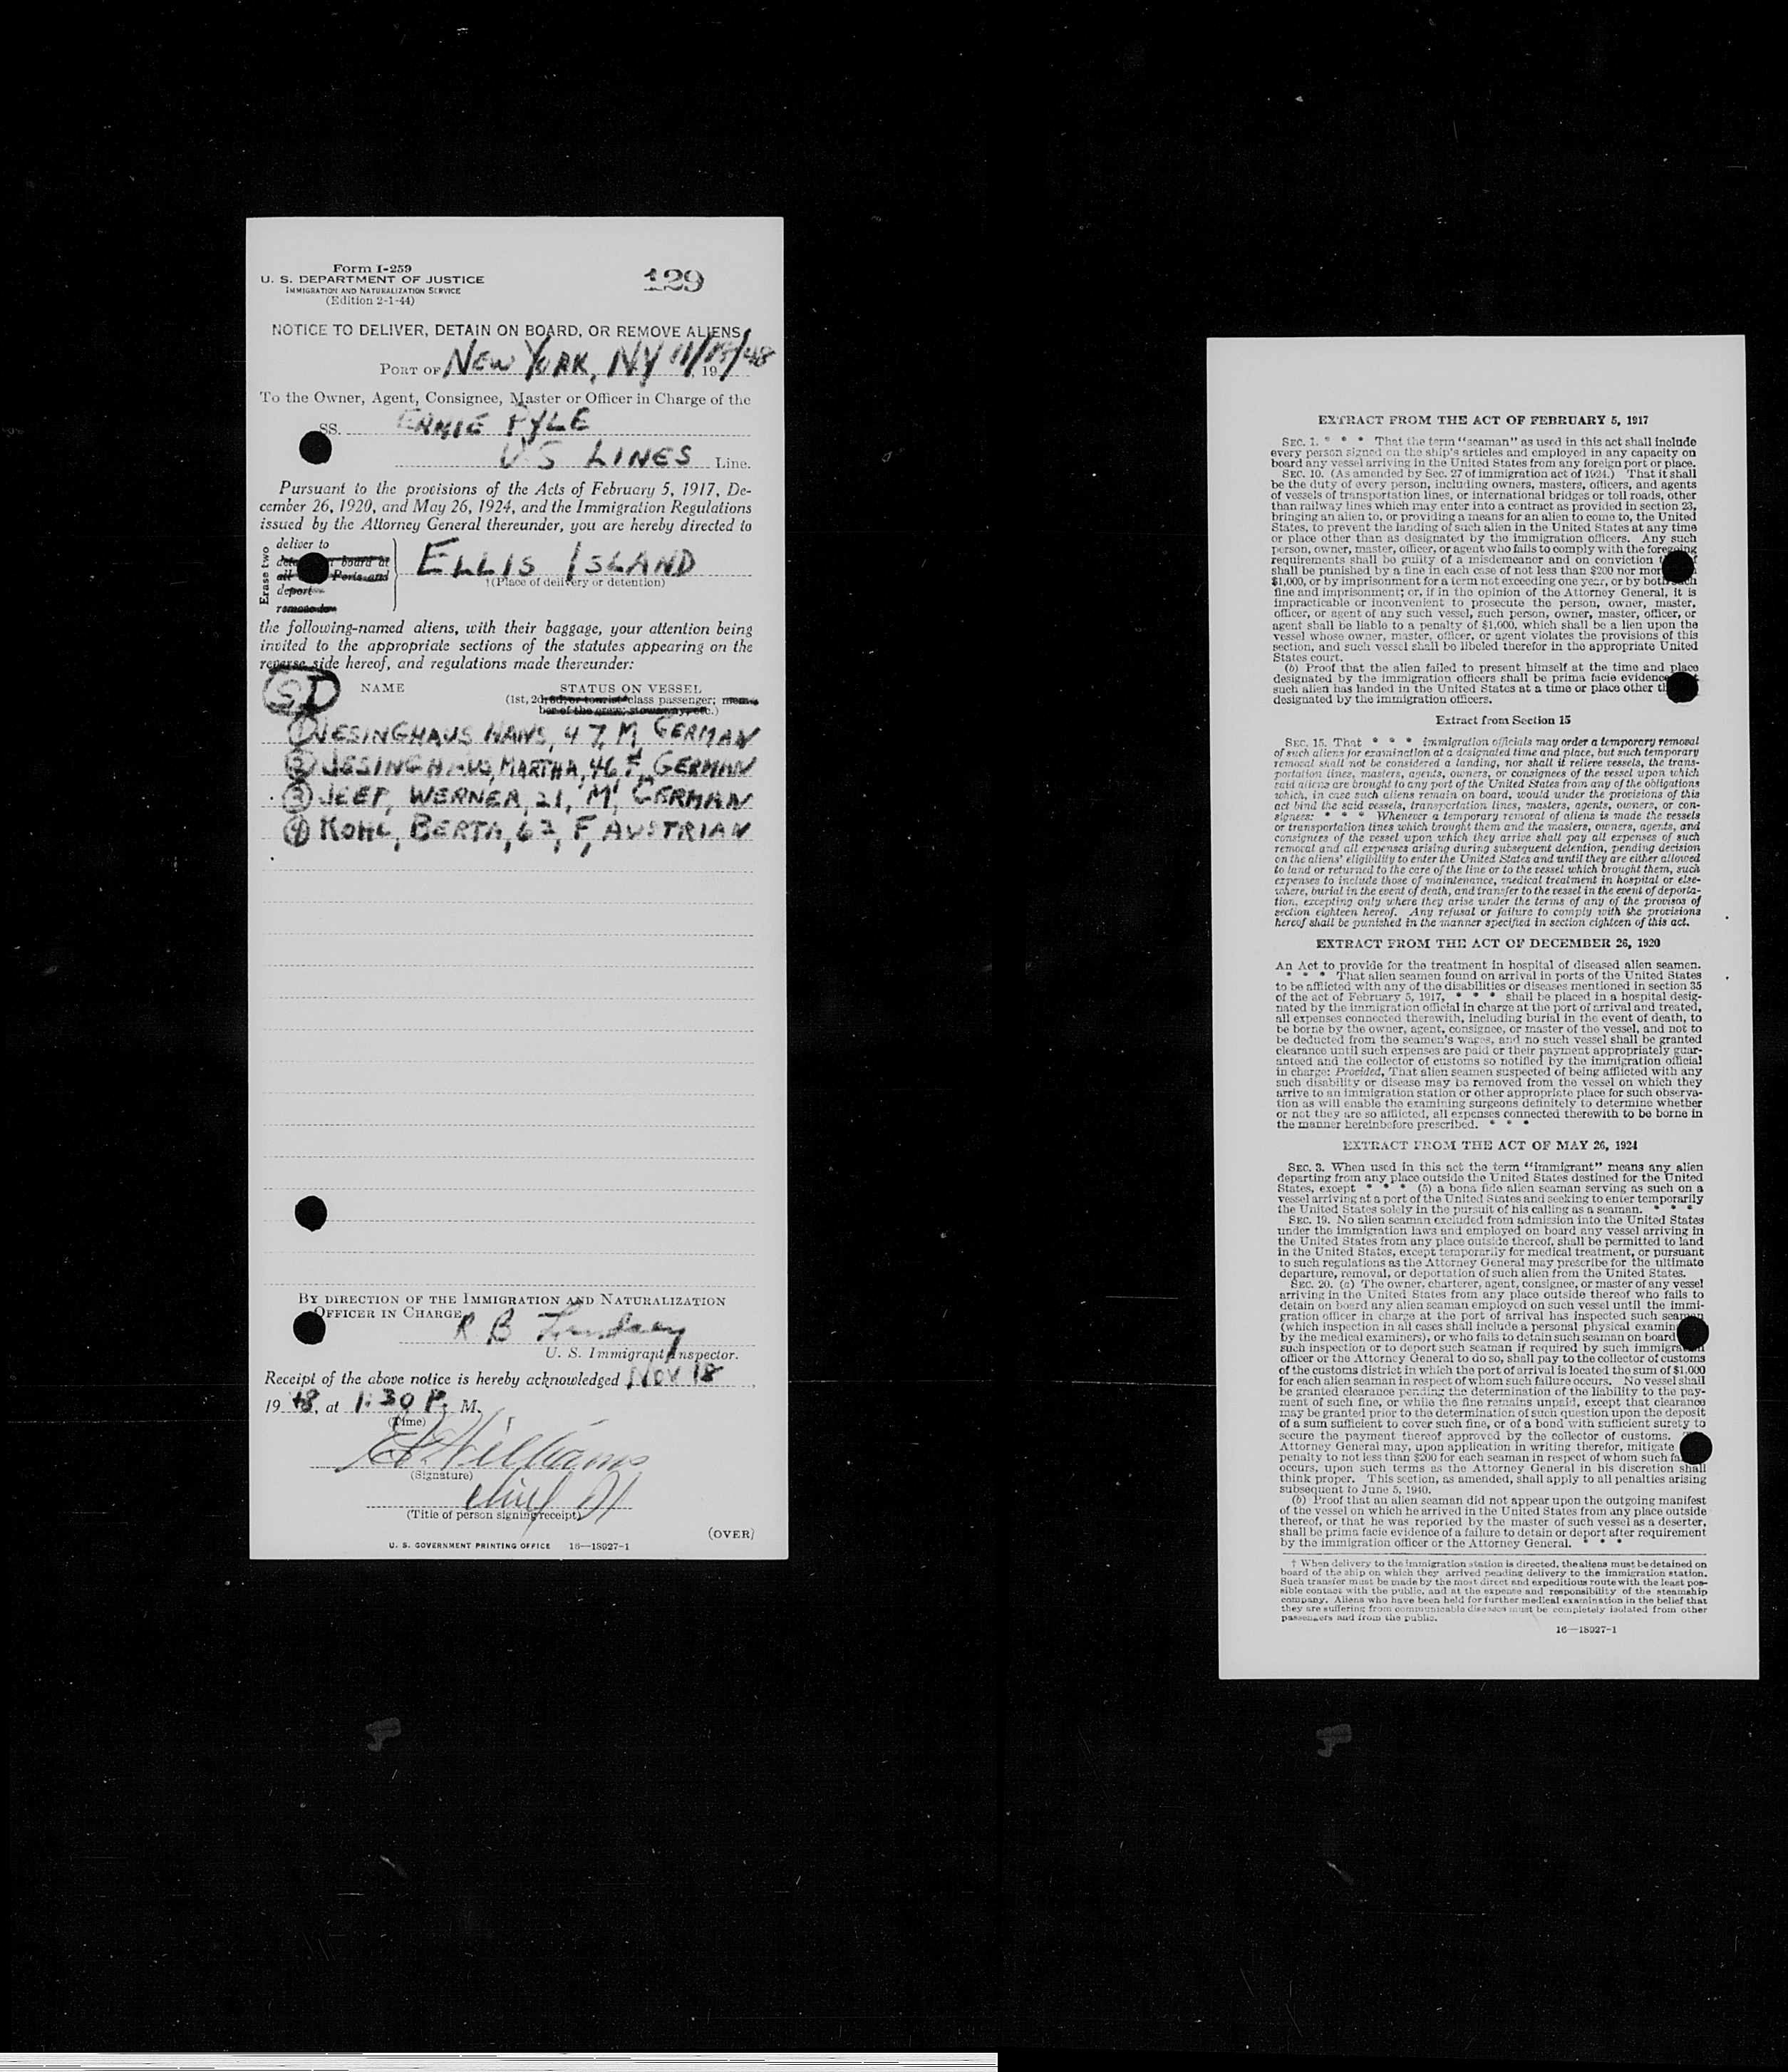 Form I-259
U. S. DEPARTMENT OF JUSTICE
IMMIGRATION AND NATURALIZATION SERVICE
(Edition 2-1-44)
129
NOTICE TO DELIVER, DETAIN ON BOARD, OR REMOVE ALIENS
PORT OF NEW YORK, NY 11/18/48 , 19
To the Owner, Agent, Consignee, Master or Officer in Charge of the
SS. ERNIE PYLE
US LINES Line.
Pursuant to the provisions of the Acts of February 5, 1917, De-
cember 26, 1920, and May 26, 1924, and the Immigration Regulations
issued by the Attorney General thereunder, you are hereby directed to
Erase two
deliver to
board at
all Ports and
deport
remove to
ELLIS ISLAND
†(Place of delivery or detention)
the following-named aliens, with their baggage, your attention being
invited to the appropriate sections of the statutes appearing on the
reverse side hereof, and regulations made thereunder:
SD
NAME STATUS ON VESSEL
(1st, 2d, 3d, or tourist class passenger; mem-
ber of the crew; stowaway, etc.)
① JESINGHAUS HANS, 47, M, GERMAN
② JESINGHAUS, MARTHA, 46, F, GERMAN
③ JEEP, WERNER, 21, M, GERMAN
④ KOHL, BERTA, 62, F, AUSTRIAN
BY DIRECTION OF THE IMMIGRATION AND NATURALIZATION
OFFICER IN CHARGE
R B Lindsey
U. S. Immigrant Inspector.
Receipt of the above notice is hereby acknowledged Nov 18,
19 48, at 1:30 P. M.
(Time)
Williams
(Signature)
(Title of person signing receipt)
(OVER)
U. S. GOVERNMENT PRINTING OFFICE 16—18927-1
EXTRACT FROM THE ACT OF FEBRUARY 5, 1917
SEC. 1. * * * That the term "seaman" as used in this act shall include
every person signed on the ship's articles and employed in any capacity on
board any vessel arriving in the United States from any foreign port or place.
SEC. 10. (As amended by Sec. 27 of immigration act of 1924.) That it shall
be the duty of every person, including owners, masters, officers, and agents
of vessels of transportation lines, or international bridges or toll roads, other
than railway lines which may enter into a contract as provided in section 23,
bringing an alien to, or providing a means for an alien to come to, the United
States, to prevent the landing of such alien in the United States at any time
or place other than as designated by the immigration officers. Any such
person, owner, master, officer, or agent who fails to comply with the foregoing
requirements shall be guilty of a misdemeanor and on conviction
shall be punished by a fine in each case of not less than $200 nor mor
$1,000, or by imprisonment for a term not exceeding one year, or by both such
fine and imprisonment; or, if in the opinion of the Attorney General, it is
impracticable or inconvenient to prosecute the person, owner, master,
officer, or agent of any such vessel, such person, owner, master, officer, or
agent shall be liable to a penalty of $1,000, which shall be a lien upon the
vessel whose owner, master, officer, or agent violates the provisions of this
section, and such vessel shall be libeled therefor in the appropriate United
States court.
(b) Proof that the alien failed to present himself at the time and place
designated by the immigration officers shall be prima facie evidence
such alien has landed in the United States at a time or place other th
designated by the immigration officers.
Extract from Section 15
SEC. 15. That * * * immigration officials may order a temporary removal
of such aliens for examination at a designated time and place, but such temporary
removal shall not be considered a landing, nor shall it relieve vessels, the trans-
portation lines, masters, agents, owners, or consignees of the vessel upon which
said aliens are brought to any port of the United States from any of the obligations
which, in case such aliens remain on board, would under the provisions of this
act bind the said vessels, transportation lines, masters, agents, owners, or con-
signees: * * * Whenever a temporary removal of aliens is made the vessels
or transportation lines which brought them and the masters, owners, agents, and
consignees of the vessel upon which they arrive shall pay all expenses of such
removal and all expenses arising during subsequent detention, pending decision
on the aliens' eligibility to enter the United States and until they are either allowed
to land or returned to the care of the line or to the vessel which brought them, such
expenses to include those of maintenance, medical treatment in hospital or else-
where, burial in the event of death, and transfer to the vessel in the event of deporta-
tion, excepting only where they arise under the terms of any of the provisos of
section eighteen hereof. Any refusal or failure to comply with the provisions
hereof shall be punished in the manner specified in section eighteen of this act.
EXTRACT FROM THE ACT OF DECEMBER 26, 1920
An Act to provide for the treatment in hospital of diseased alien seamen.
* * * That alien seamen found on arrival in ports of the United States
to be afflicted with any of the disabilities or diseases mentioned in section 35
of the act of February 5, 1917, * * * shall be placed in a hospital desig-
nated by the immigration official in charge at the port of arrival and treated,
all expenses connected therewith, including burial in the event of death, to
be borne by the owner, agent, consignee, or master of the vessel, and not to
be deducted from the seamen's wages, and no such vessel shall be granted
clearance until such expenses are paid or their payment appropriately guar-
anteed and the collector of customs so notified by the immigration official
in charge: Provided, That alien seamen suspected of being afflicted with any
such disability or disease may be removed from the vessel on which they
arrive to an immigration station or other appropriate place for such observa-
tion as will enable the examining surgeons definitely to determine whether
or not they are so afflicted, all expenses connected therewith to be borne in
the manner hereinbefore prescribed. * * *
EXTRACT FROM THE ACT OF MAY 26, 1924
SEC. 3. When used in this act the term "immigrant" means any alien
departing from any place outside the United States destined for the United
States, except * * * (5) a bona fide alien seaman serving as such on a
vessel arriving at a port of the United States and seeking to enter temporarily
the United States solely in the pursuit of his calling as a seaman. * * *
SEC. 19. No alien seaman excluded from admission into the United States
under the immigration laws and employed on board any vessel arriving in
the United States from any place outside thereof, shall be permitted to land
in the United States, except temporarily for medical treatment, or pursuant
to such regulations as the Attorney General may prescribe for the ultimate
departure, removal, or deportation of such alien from the United States.
SEC. 20. (a) The owner, charterer, agent, consignee, or master of any vessel
arriving in the United States from any place outside thereof who fails to
detain on board any alien seaman employed on such vessel until the immi-
gration officer in charge at the port of arrival has inspected such seaman
(which inspection in all cases shall include a personal physical examin
by the medical examiners), or who fails to detain such seaman on board
such inspection or to deport such seaman if required by such immigration
officer or the Attorney General to do so, shall pay to the collector of customs
of the customs district in which the port of arrival is located the sum of $1,000
for each alien seaman in respect of whom such failure occurs. No vessel shall
be granted clearance pending the determination of the liability to the pay-
ment of such fine, or while the fine remains unpaid, except that clearance
may be granted prior to the determination of such question upon the deposit
of a sum sufficient to cover such fine, or of a bond with sufficient surety to
secure the payment thereof approved by the collector of customs.
Attorney General may, upon application in writing therefor, mitigate
penalty to not less than $200 for each seaman in respect of whom such fa
occurs, upon such terms as the Attorney General in his discretion shall
think proper. This section, as amended, shall apply to all penalties arising
subsequent to June 5, 1940.
(b) Proof that an alien seaman did not appear upon the outgoing manifest
of the vessel on which he arrived in the United States from any place outside
thereof, or that he was reported by the master of such vessel as a deserter,
shall be prima facie evidence of a failure to detain or deport after requirement
by the immigration officer or the Attorney General. * * *
† When delivery to the immigration station is directed, the aliens must be detained on
board of the ship on which they arrived pending delivery to the immigration station.
Such transfer must be made by the most direct and expeditious route with the least pos-
sible contact with the public, and at the expense and responsibility of the steamship
company. Aliens who have been held for further medical examination in the belief that
they are suffering from communicable diseases must be completely isolated from other
passengers and from the public.
16—18927-1